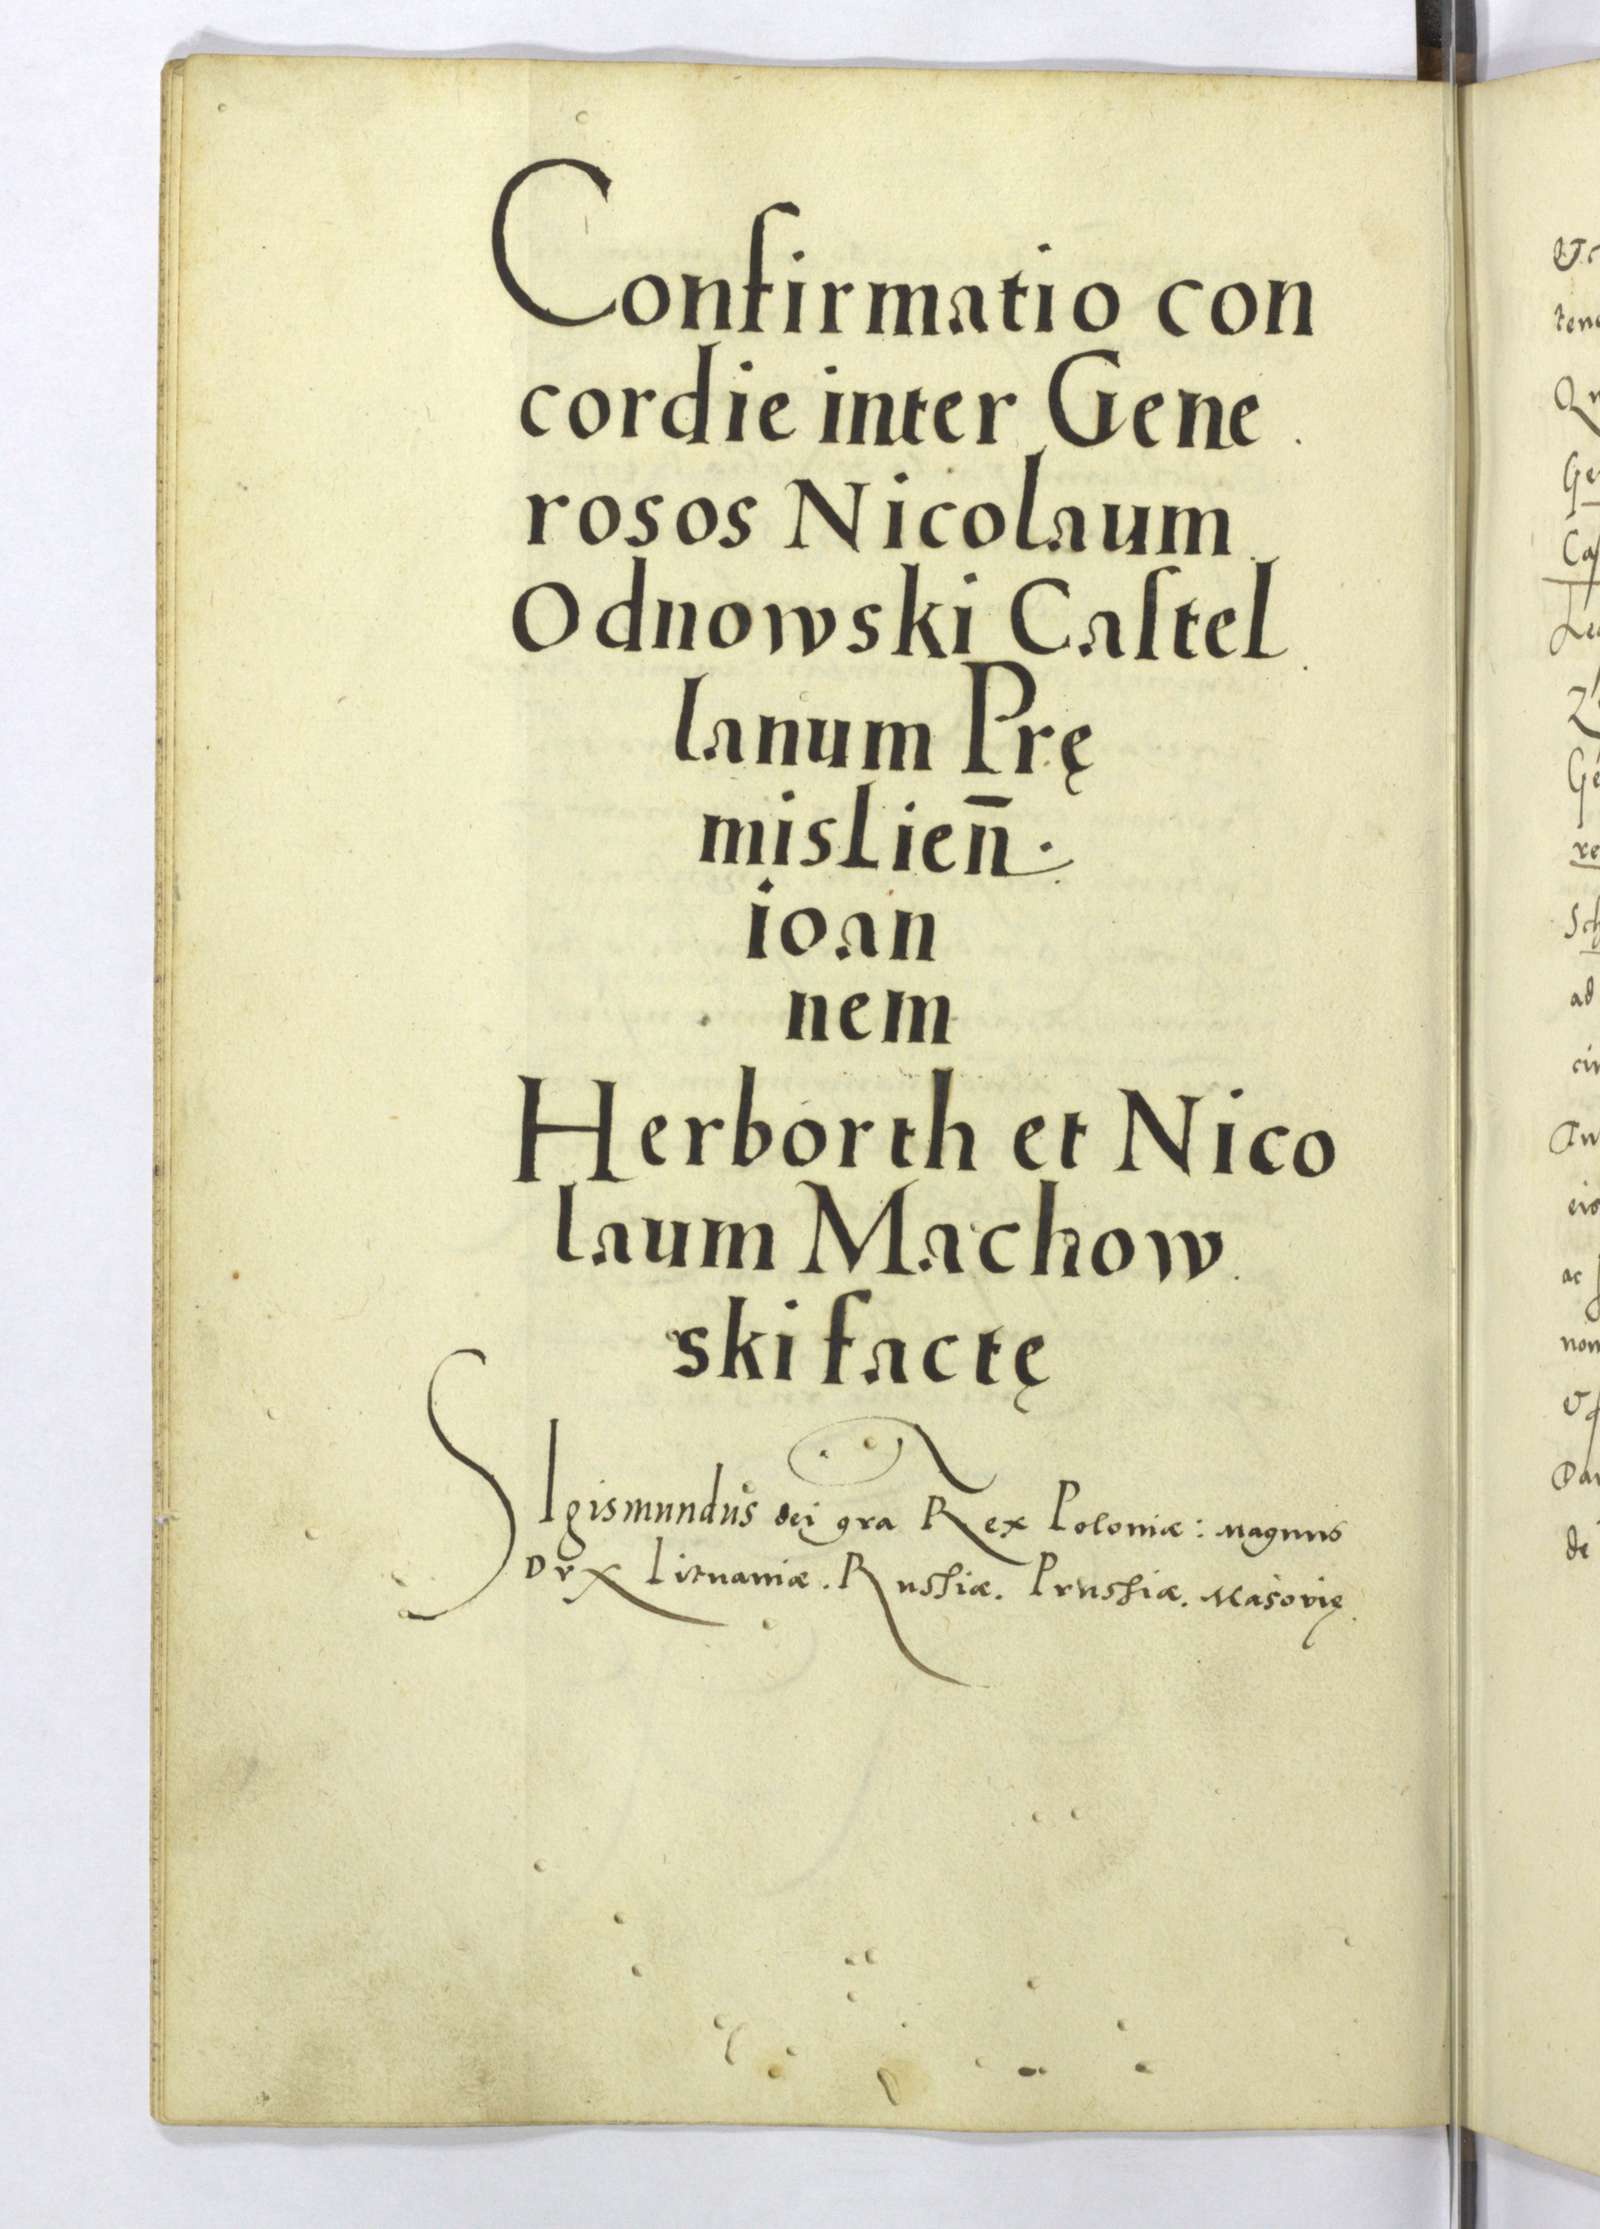 Confirmatio con
cordie inter Gene
rosos Nicolaum
Odnowski Caſtel
lanum Prę
mislien̄.
ioan
nem
Herborth et Nico
laum Machow
ski factę
SIgismundus dei gra Rex Poloniæ: magnus
Dvx Lituaniæ. Rusſiæ. Prusſiæ. Masovię